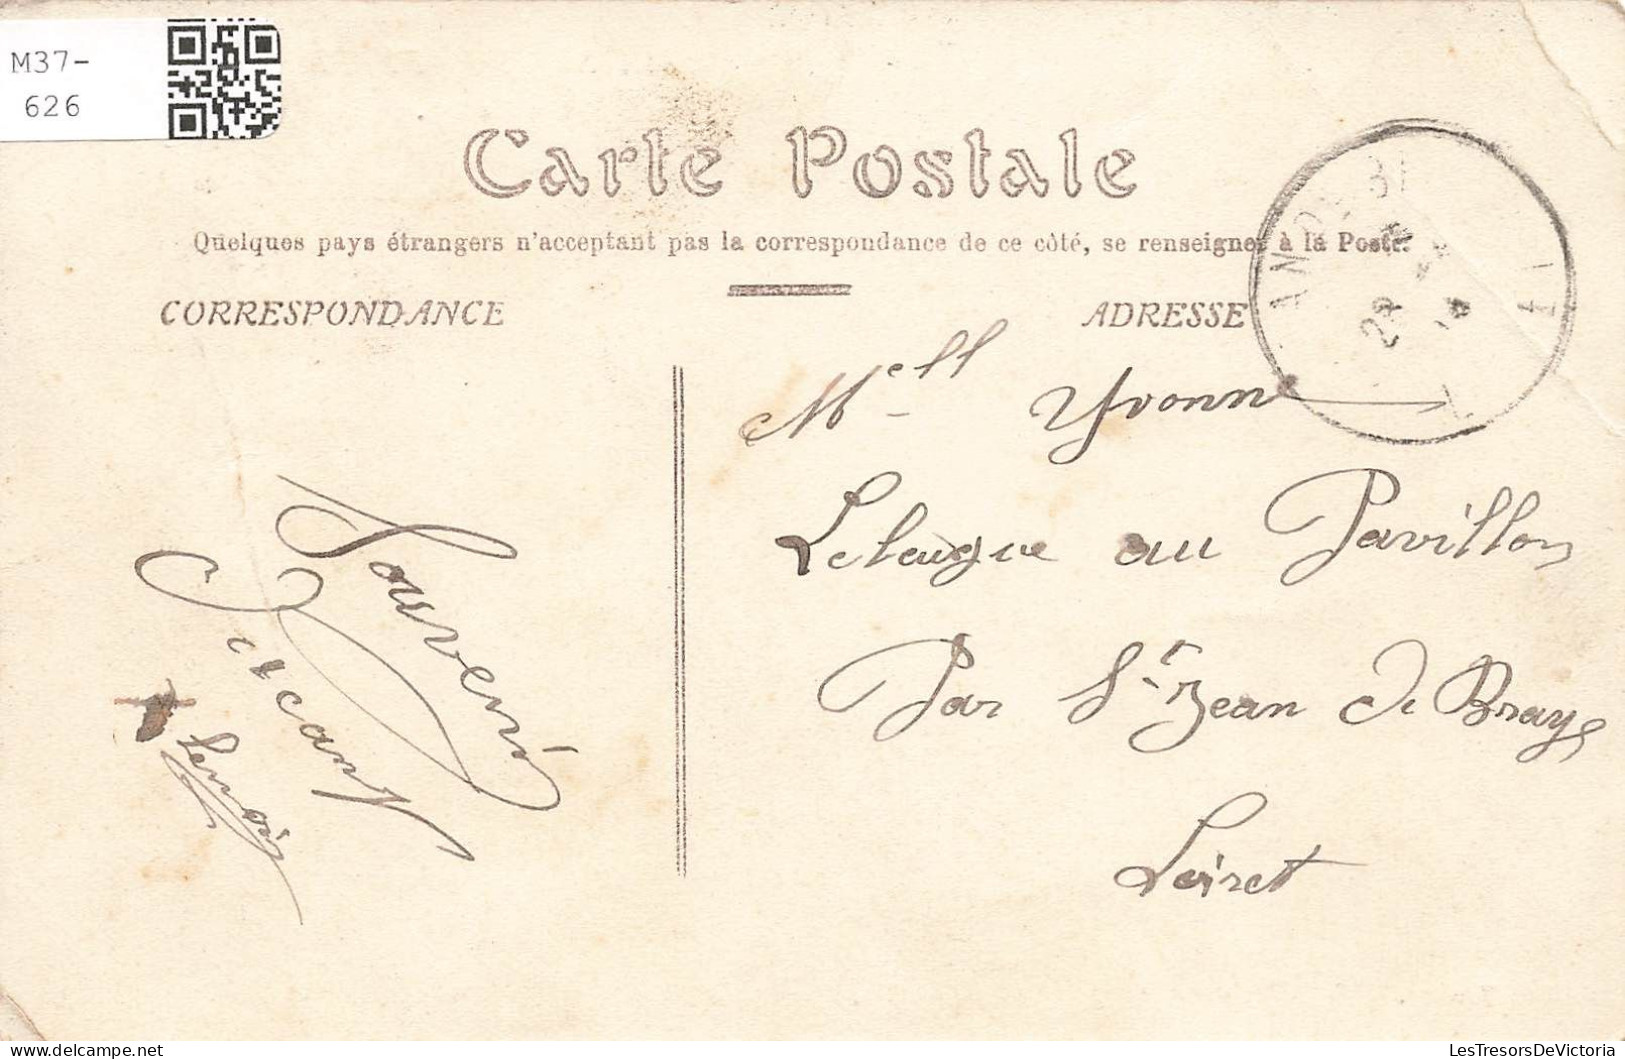 M37-
626
Carte Postale
Quelques pays étrangers n'acceptant pas la correspondance de ce côté, se renseigner à la Poste.
CORRESPONDANCE
ADRESSE
Souvenir
Mell Yvonne
au Pavillon
Par St Jean de Braye
Loiret
LesTresorsDeVictoria